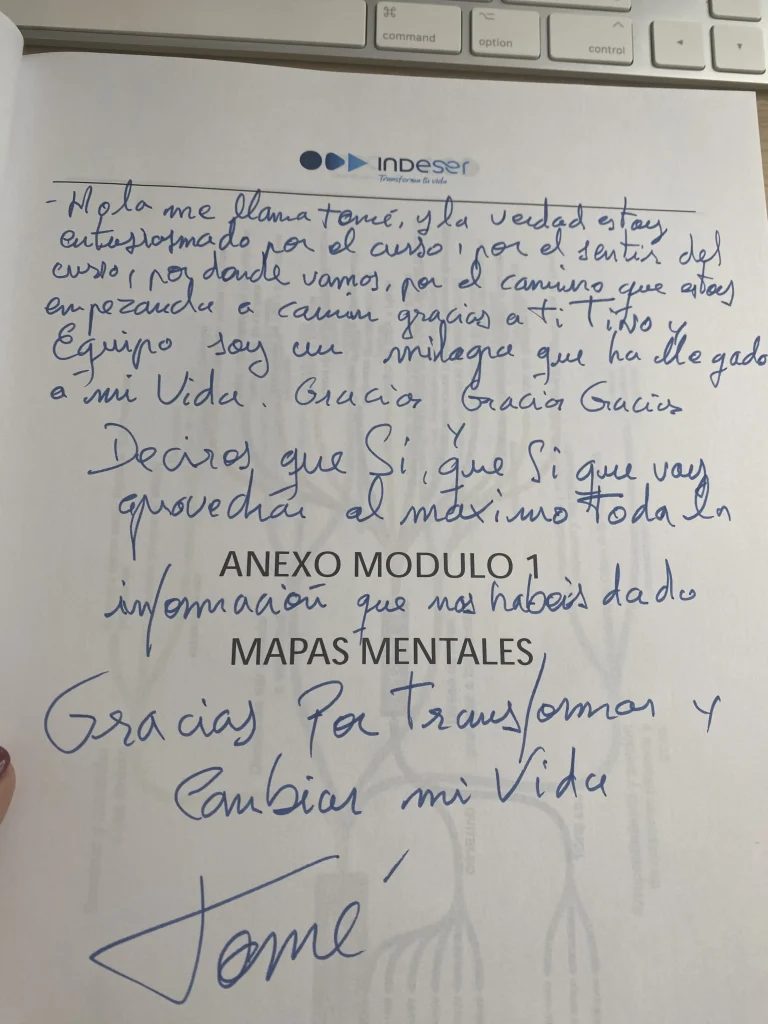 ⌘
command
⌥
option
^
control
◂
▾
INDESER
Transforma tu vida
- Hola me llama tomé, y la verdad estoy
entusiasmado por el curso, por el sentir del
curso, por donde vamos, por el camino que estoy
empezando a camin gracias a ti Tito y
Equipo soy un milagro que ha llegado
a mi Vida. Gracias Gracias Gracias
Deciros que Si, y que Si que voy
aprovechar al máximo toda la
ANEXO MODULO 1
información que nos habeis dado
MAPAS MENTALES
Gracias Por transformar y
Cambiar mi Vida
Tomé